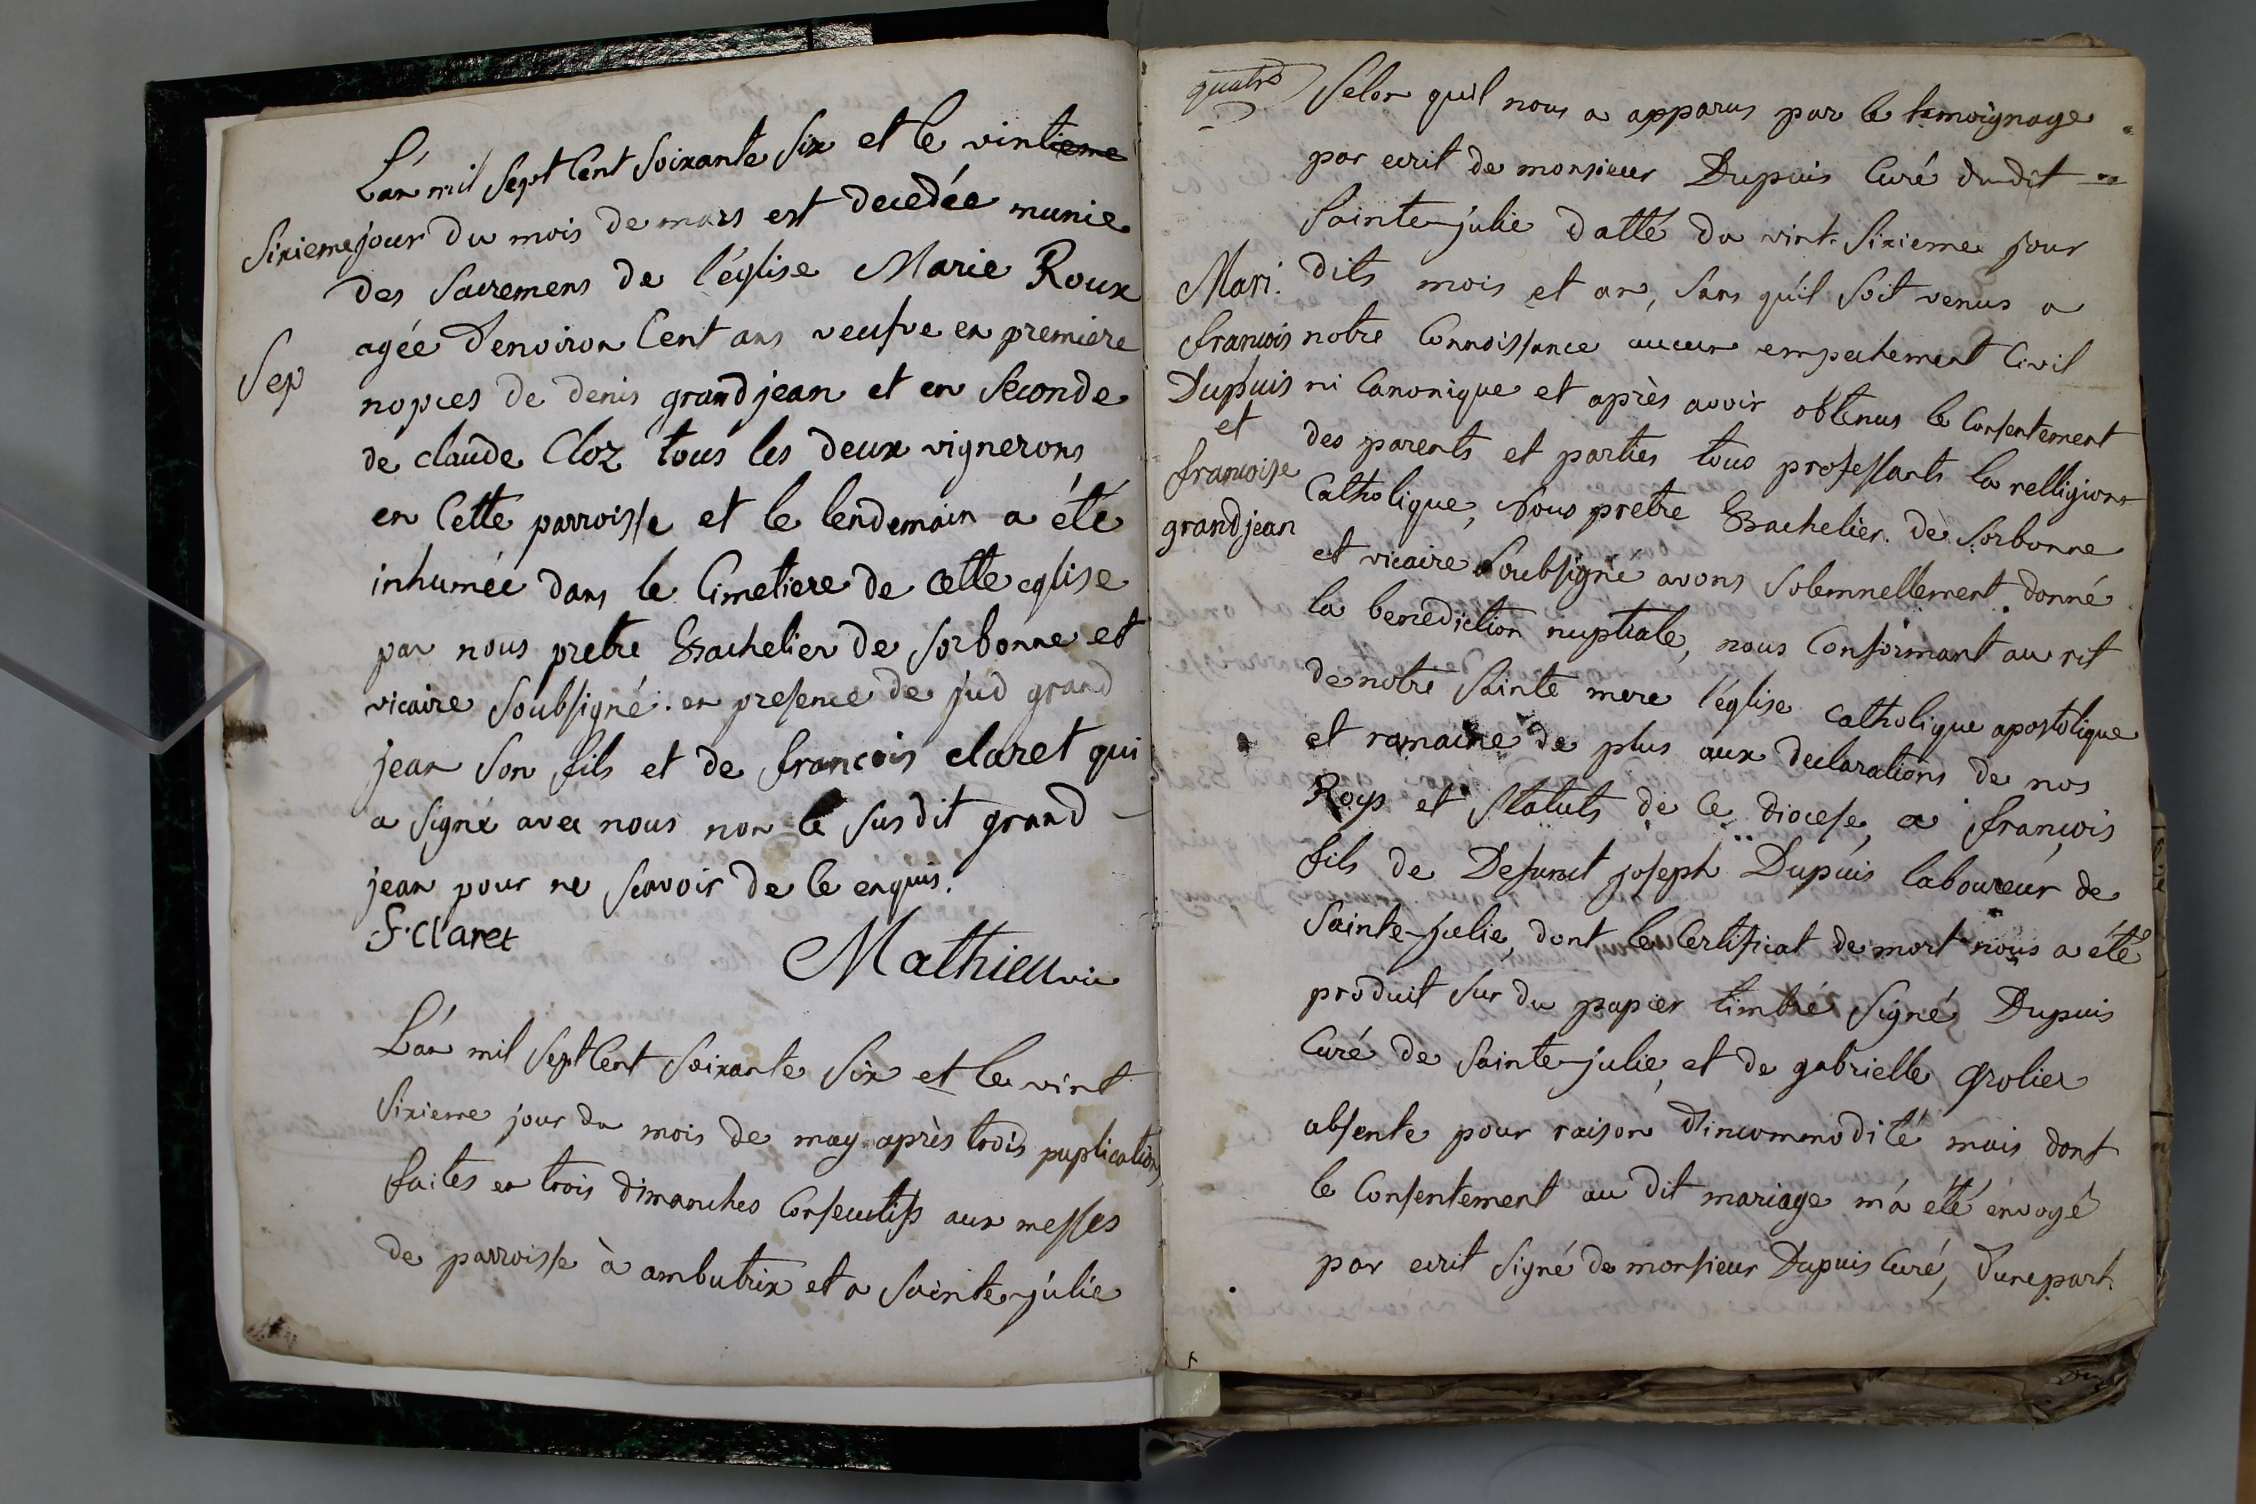 L'an mil sept Cent soixante six et le vintieme
sixieme jour du mois de mars est decedée munie
des sacremens de l'église Marie Roux
agée d'environ Cent ans veufve en premiere
Sep
nopces de denis grandjean et en seconde
de claude Cloz tous les deux vignerons
en Cette parroisse et le lendemain a été
inhumée dans le Cimetiere de cette eglise
par nous pretre Bachelier de sorbonne et
vicaire soubsigné. en presence de jud grand
jean son fils et de françois claret qui
a signé avec nous non le susdit grand
jean pour ne scavoir de le enquis.
F. Claret
Mathieu vic
L'an mil sept Cent soixante six et le vint
sixieme jour du mois de may après trois puplications
faites en trois dimanches Consecutifs aux messes
de parroisse à ambutrix et a sainte-julie
quatre
Selon quil nous a apparus par le temoignage
par ecrit de monsieur Dupuis Curé dudit
sainte-julie datté du vint-sixieme jour
dits mois et an, sans qu'il soit venus a
notre Connoissance aucun empechement Civil
ni Canonique et après avoir obtenus le Consentement
des parents et parties tous professants la relligion
Catholique, Nous pretre Bachelier de sorbonne
et vicaire soubsigné avons solemnellement donné
la benediction nuptiale, nous Conformant au rit
de notre sainte mere l'église catholique apostolique
et romaine de plus aux declarations de nos
Roys et statuts de Ce diocese, a françois
fils de Defunct joseph Dupuis laboureur de
sainte-julie, dont le Certificat de mort nous a été
produit sur du papier timbré signé Dupuis
Curé de sainte-julie, et de gabrielle grolier
absente pour raison d'incommodité mais dont
le Consentement au dit mariage m'a été envoyé
par ecrit signé de monsieur Dupuis Curé, d'une part
Mari.
francois
Dupuis
et
francoise
grandjean